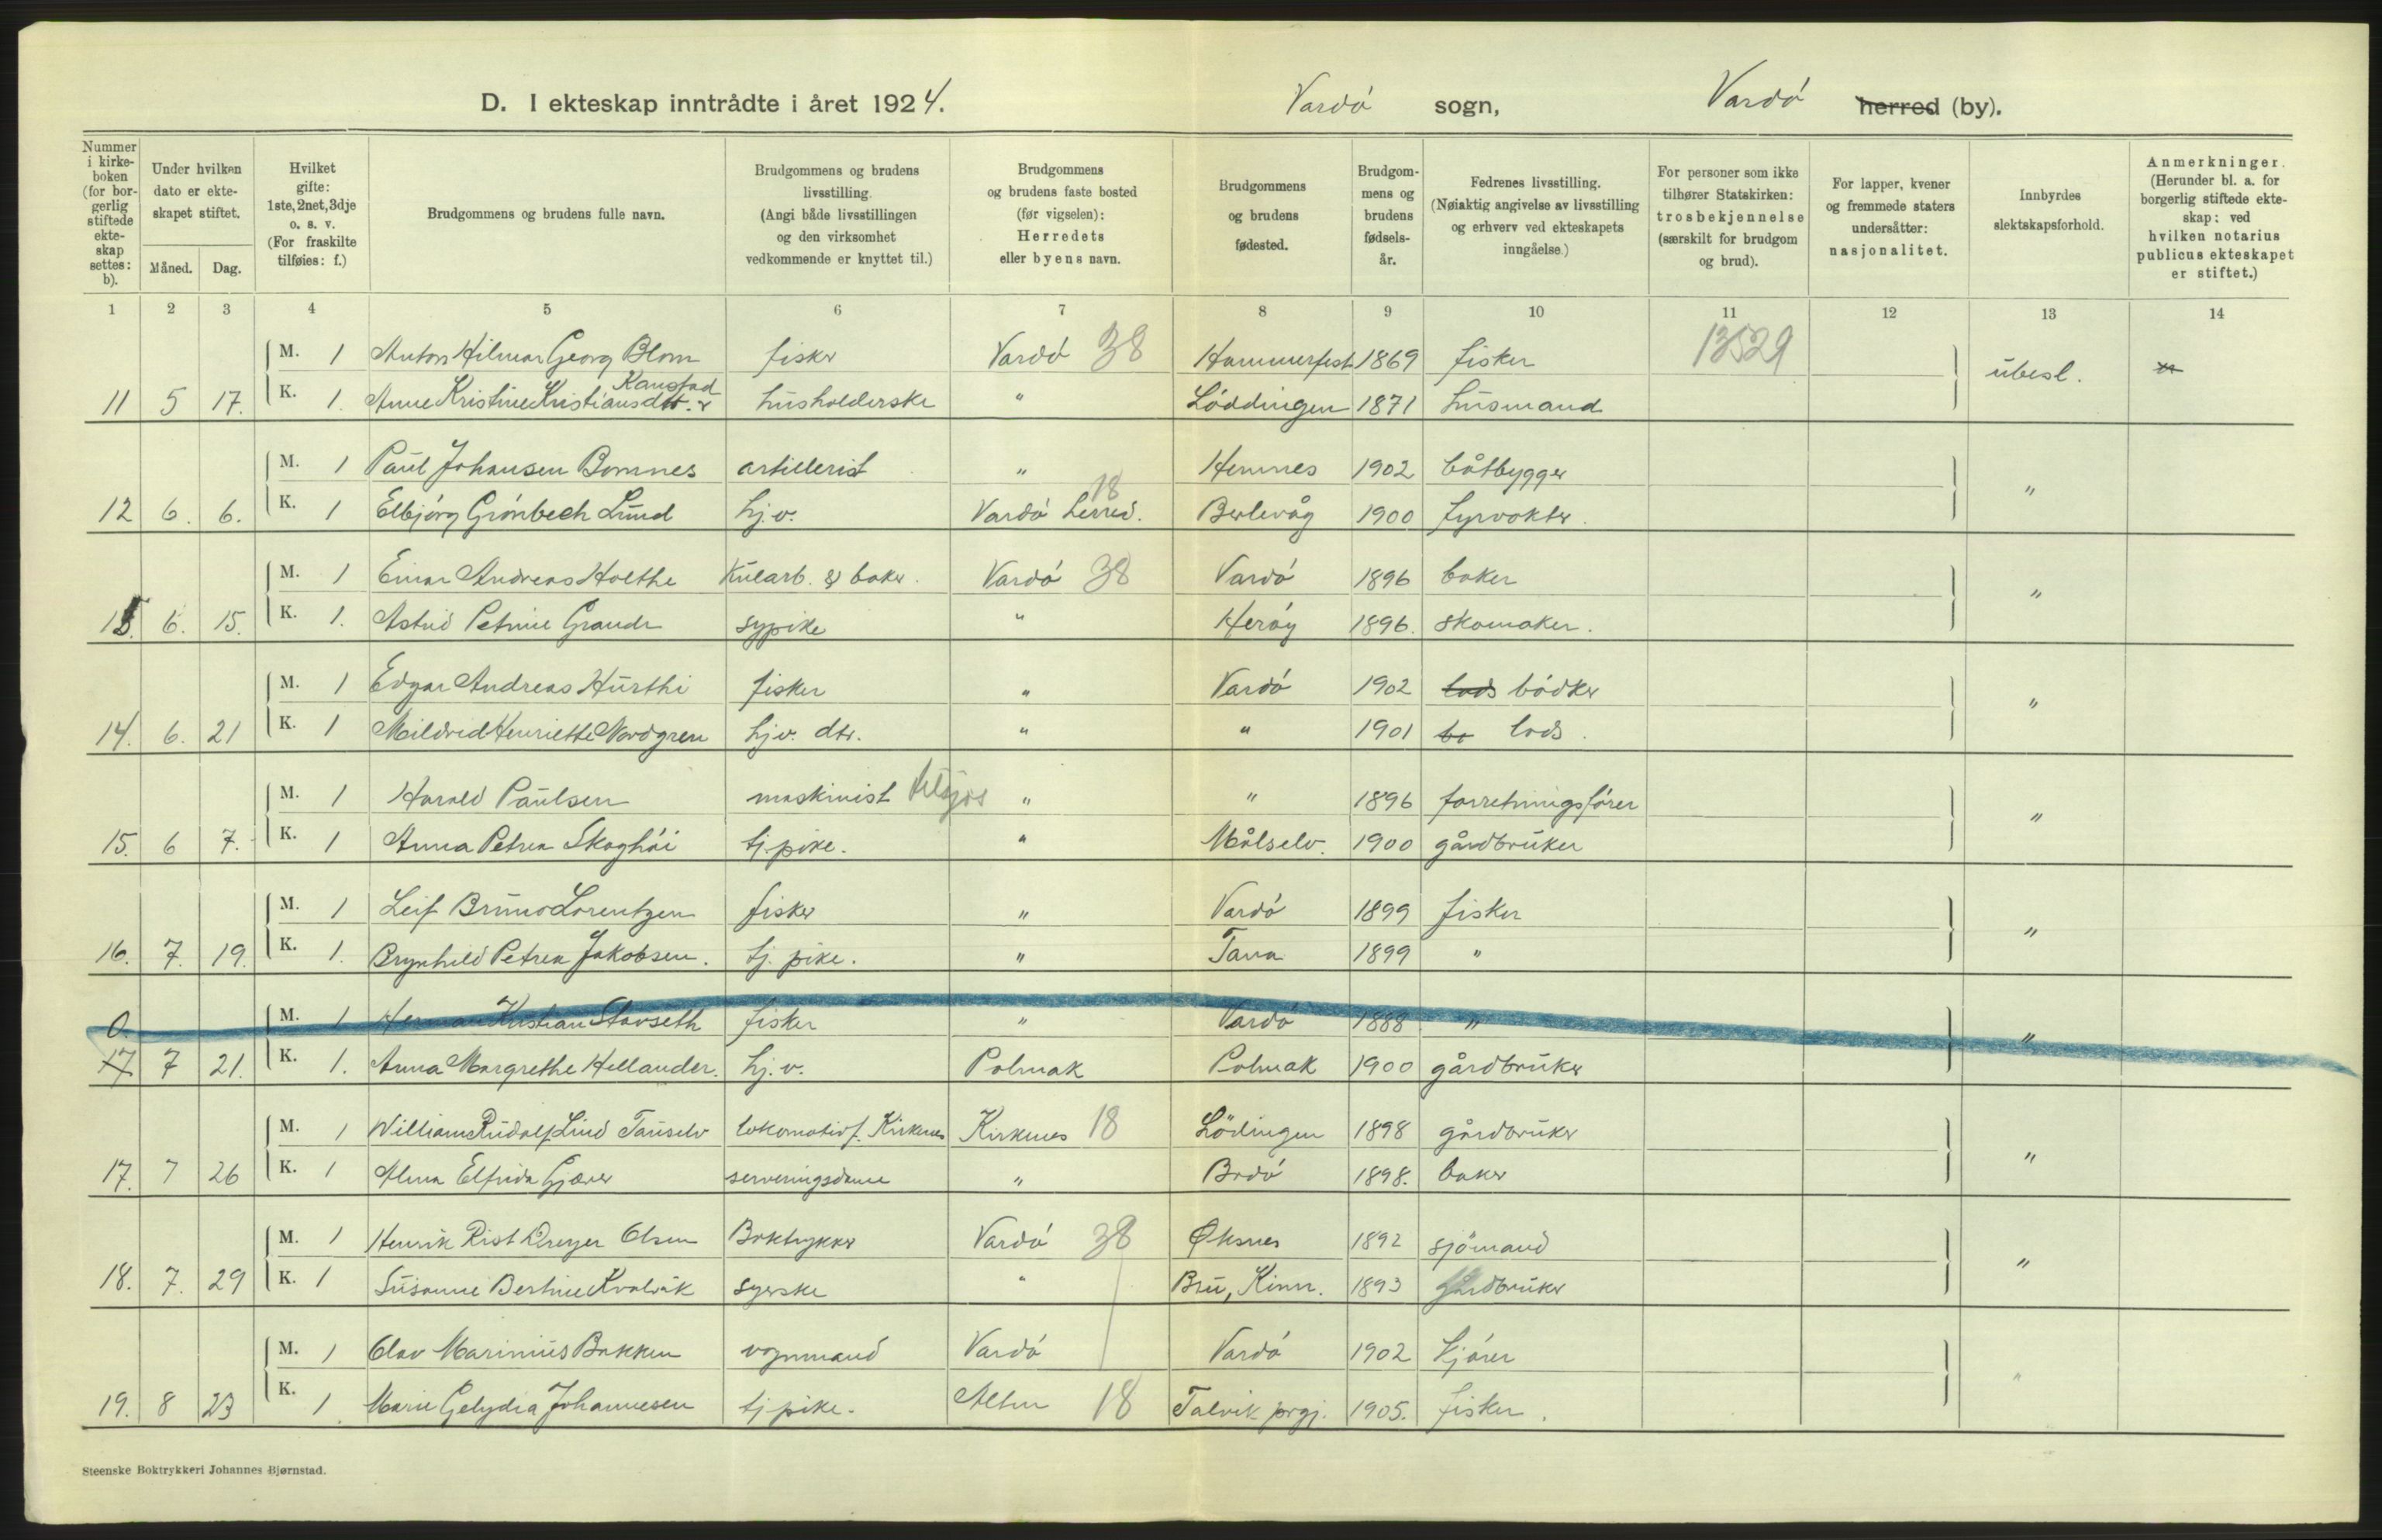 D. I ekteskap inntrådte i året 1924. Vardø sogn, Vardø herred (by).
Nummer i kirke-boken (for bor-gerlig stiftede ekte-skap settes: b).
Under hvilken dato er ekte-skapet stiftet.
Måned. Dag.
Hvilket gifte: 1ste, 2net, 3dje o. s. v. (For fraskilte tilføies: f.)
Brudgommens og brudens fulle navn.
Brudgommens og brudens livsstilling. (Angi både livsstillingen og den virksomhet vedkommende er knyttet til.)
Brudgommens og brudens faste bosted (før vigselen): Herredets eller byens navn.
Brudgommens og brudens fødested.
Brudgom-mens og brudens fødsels-år.
Fedrenes livsstilling. (Nøiaktig angivelse av livsstilling og erhverv ved ekteskapets inngåelse.)
For personer som ikke tilhører Statskirken: trosbekjennelse (særskilt for brudgom og brud).
For lapper, kvener og fremmede staters undersåtter: nasjonalitet.
Innbyrdes slektskapsforhold.
Anmerkninger. (Herunder bl. a. for borgerlig stiftede ekte-skap: ved hvilken notarius publicus ekteskapet er stiftet.)
1 2 3 4 5 6 7 8 9 10 11 12 13 14
M. 1 Anton Hilmar Georg Blom fisker Vardø 38 Hammerfest 1869 fisker 13529 ubesl.
Kanstad
11 5 17. K. 1. Anne Kristine Kristiansdtr. husholderske " Løddingen 1871 husmand
M. 1 Paul Johansen Bomnes artillerist " Hemnes 1902 båtbygger "
18
12 6. 6. K. 1 Elbjørg Grønbech Lund hj.v. Vardø herred. Berlevåg 1900 fyrvokter.
M. 1 Einar Andreas Holthe Kularb. & baker. Vardø 38 Vardø 1896 baker "
13. 6. 15. K. 1. Astrid Petrine Grande sypike " Herøy 1896. skomaker.
M. 1 Edgar Andreas Hurthi fisker " Vardø 1902 lods bødker "
14. 6. 21 K. 1 Mildrid Henriette Nordgren hj.v. dtr. " " 1901 bø lods.
M. 1 Harald Paulsen maskinist " " 1896 forretningsfører "
15. 6 7. K. 1 Anna Petrea Skoghøi tj.pike. " Målselv. 1900 gårdbruker
M. 1 Leif Bruno Lorentzen fisker " Vardø 1899 fisker "
16. 7. 19. K. 1. Brynhild Petrea Jakobsen. tj. pike. " Tana 1899 "
0 M. 1 Herman Kristian Stavseth fisker " Vardø 1888 " "
17 7 21. K. 1. Anna Margrethe Hellander. hj.v. Polmak Polmak 1900 gårdbruker
M. 1 William Rudolf Lind Tauselv lokomotivf. Kirkenes Kirkenes 18 Lödingen 1898 gårdbruker "
17. 7 26 K. 1 Alma Elfrida Gjæver serveringsdame " Bodø 1898. baker
M. 1 Henrik Rist Dreyer Olsen Boktrykker Vardø 38 Øksnes 1892 sjömand "
18. 7. 29 K. 1 Susanne Bertine Kvalvik syerske " Bru, Kinn. 1893 gårdbruker
M. 1 Olav Marinius Bakken vognmand Vardø Vardø 1902 kjører "
19. 8 23 K. 1 Marie Gelydia Johannesen tj pike. Alten 18 Talvik prgj. 1905. fisker.
Steenske Boktrykkeri Johannes Bjørnstad.